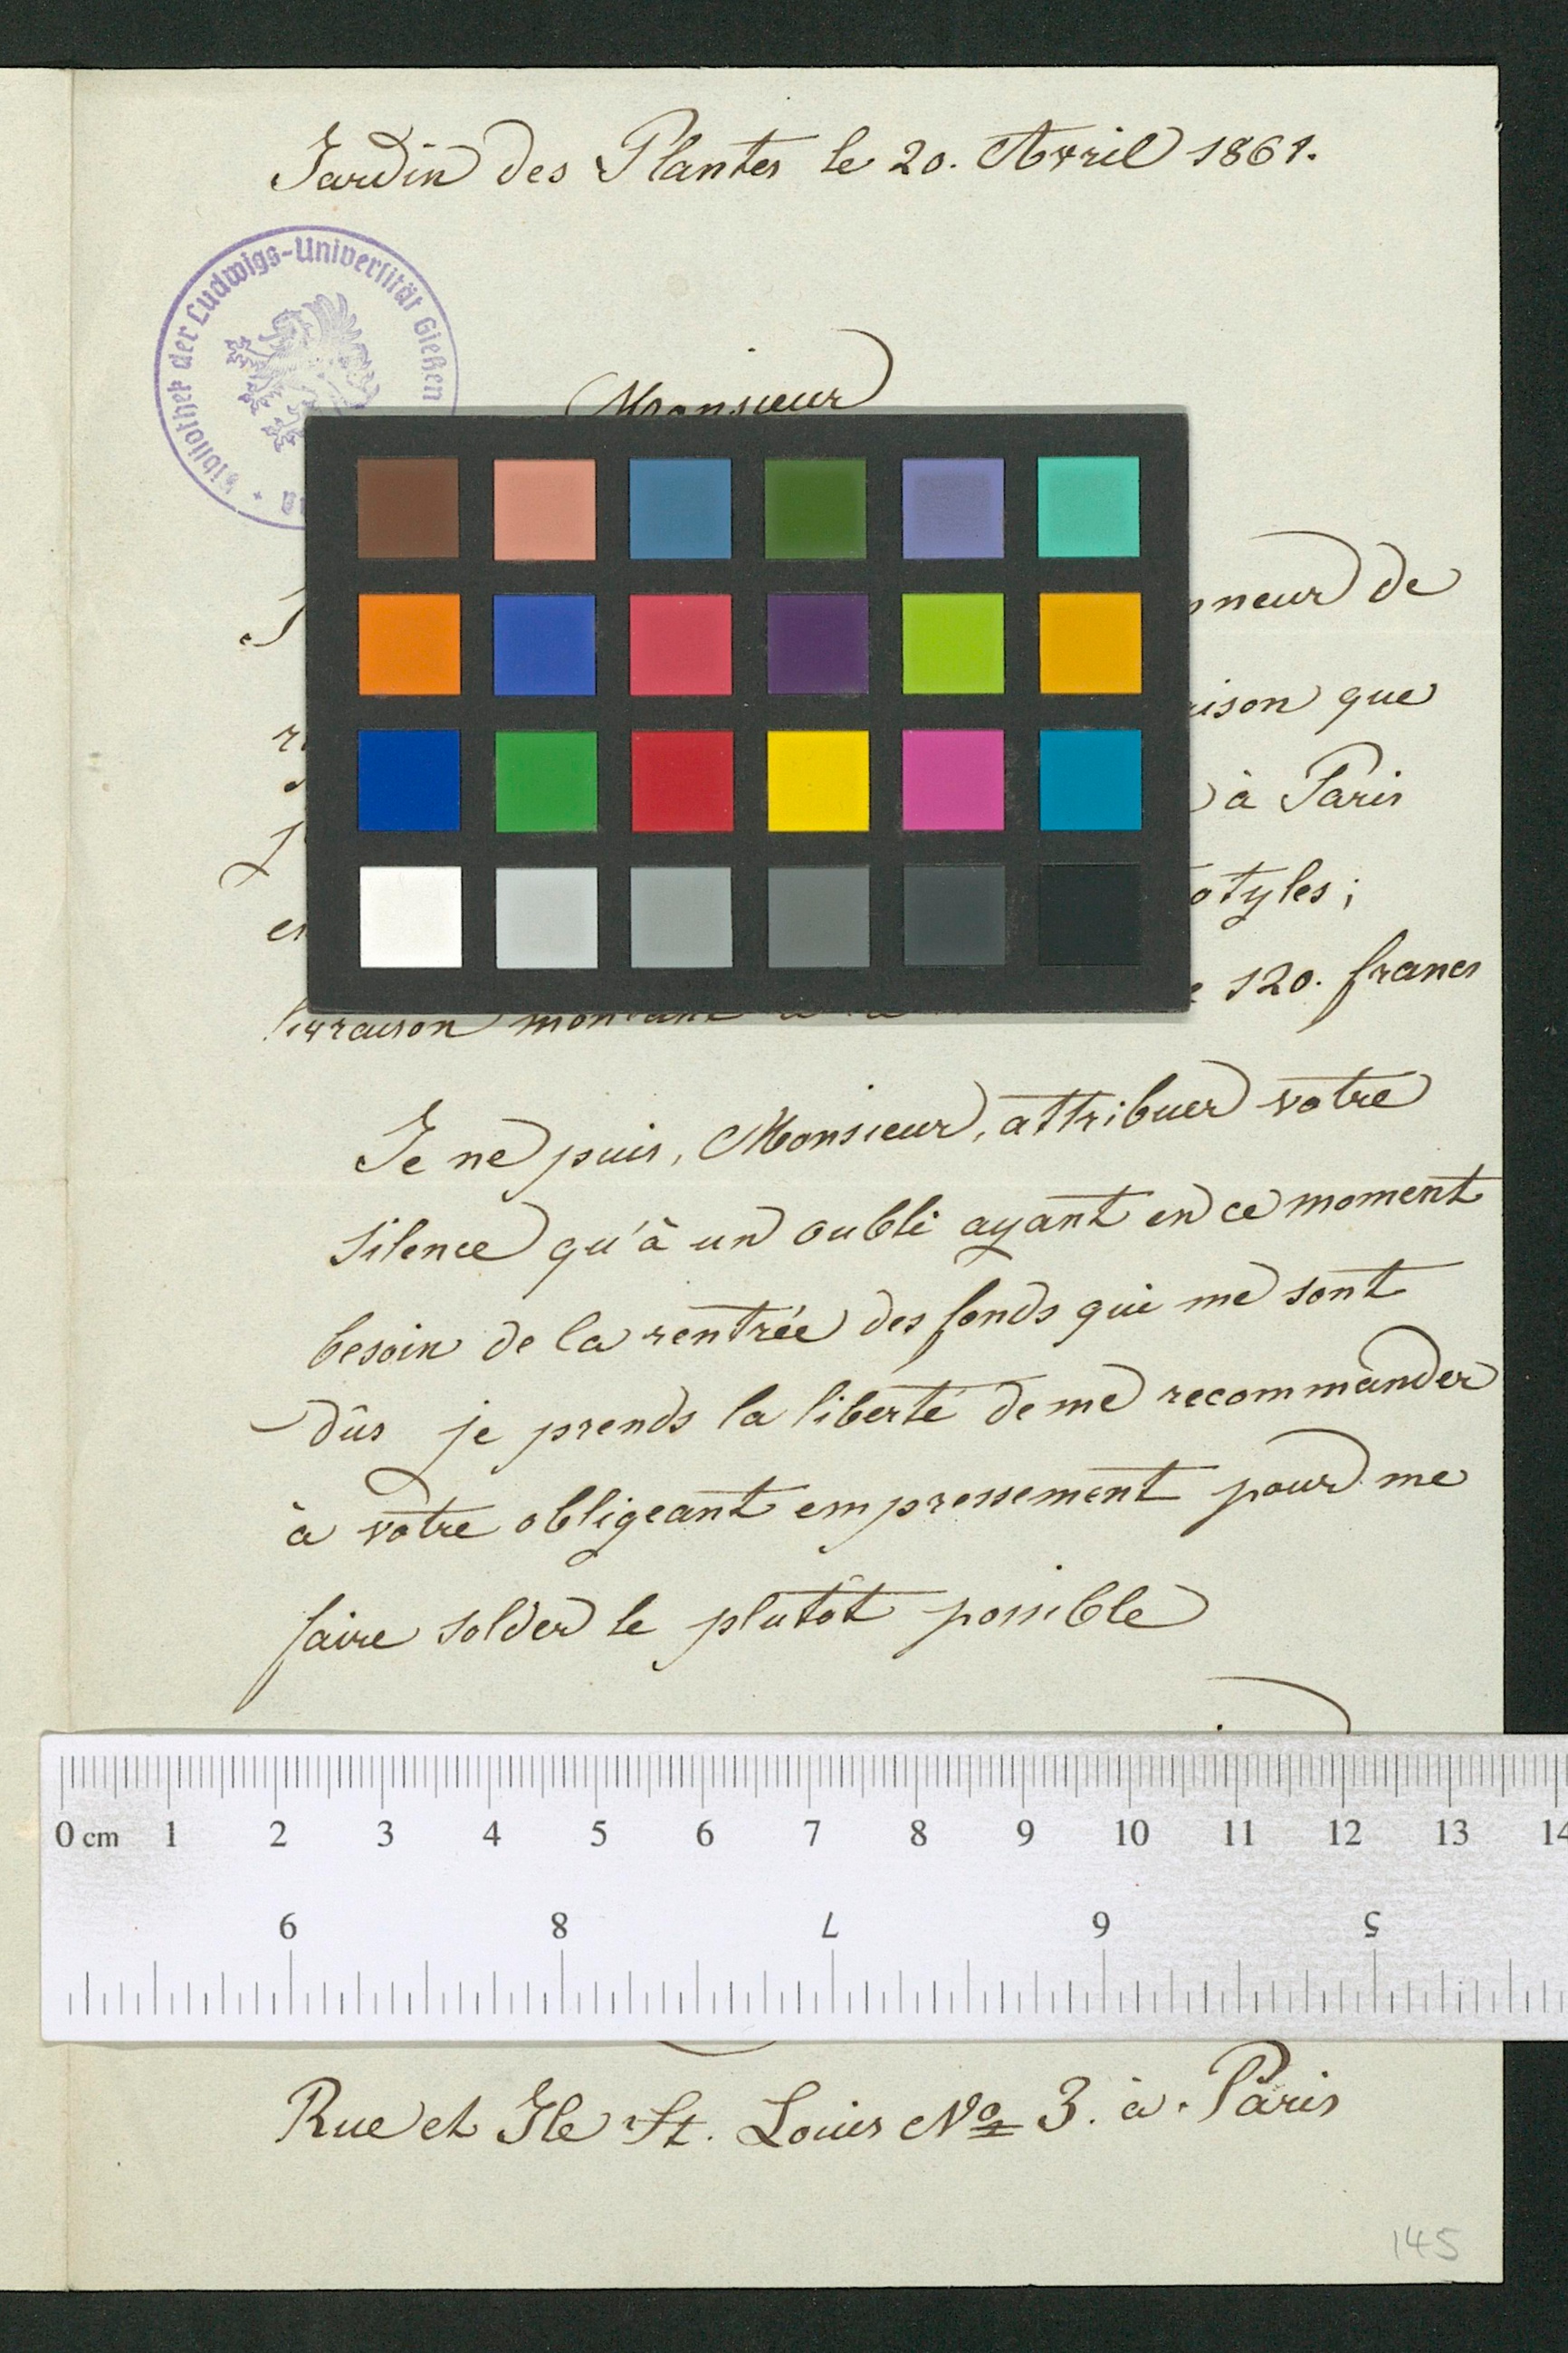 Jardin des Plantes le 20. Avril 1861.
Bibliothek der Ludwigs-Universität Gießen
Monsieur
de
que
à Paris
120. francs
livraison montant
Je ne puis, Monsieur, attribuer votre
silence qu'à un oubli ayant en ce moment
besoin de la rentrée des fonds qui me sont
dûs je prends la liberté de me recommander
à votre obligeant empressement pour me
faire solder le plutôt possible
0 cm 1 2 3 4 5 6 7 8 9 10 11 12 13 14
9 8 7 6 5
Rue et Ile St. Louis No 3. à Paris
145